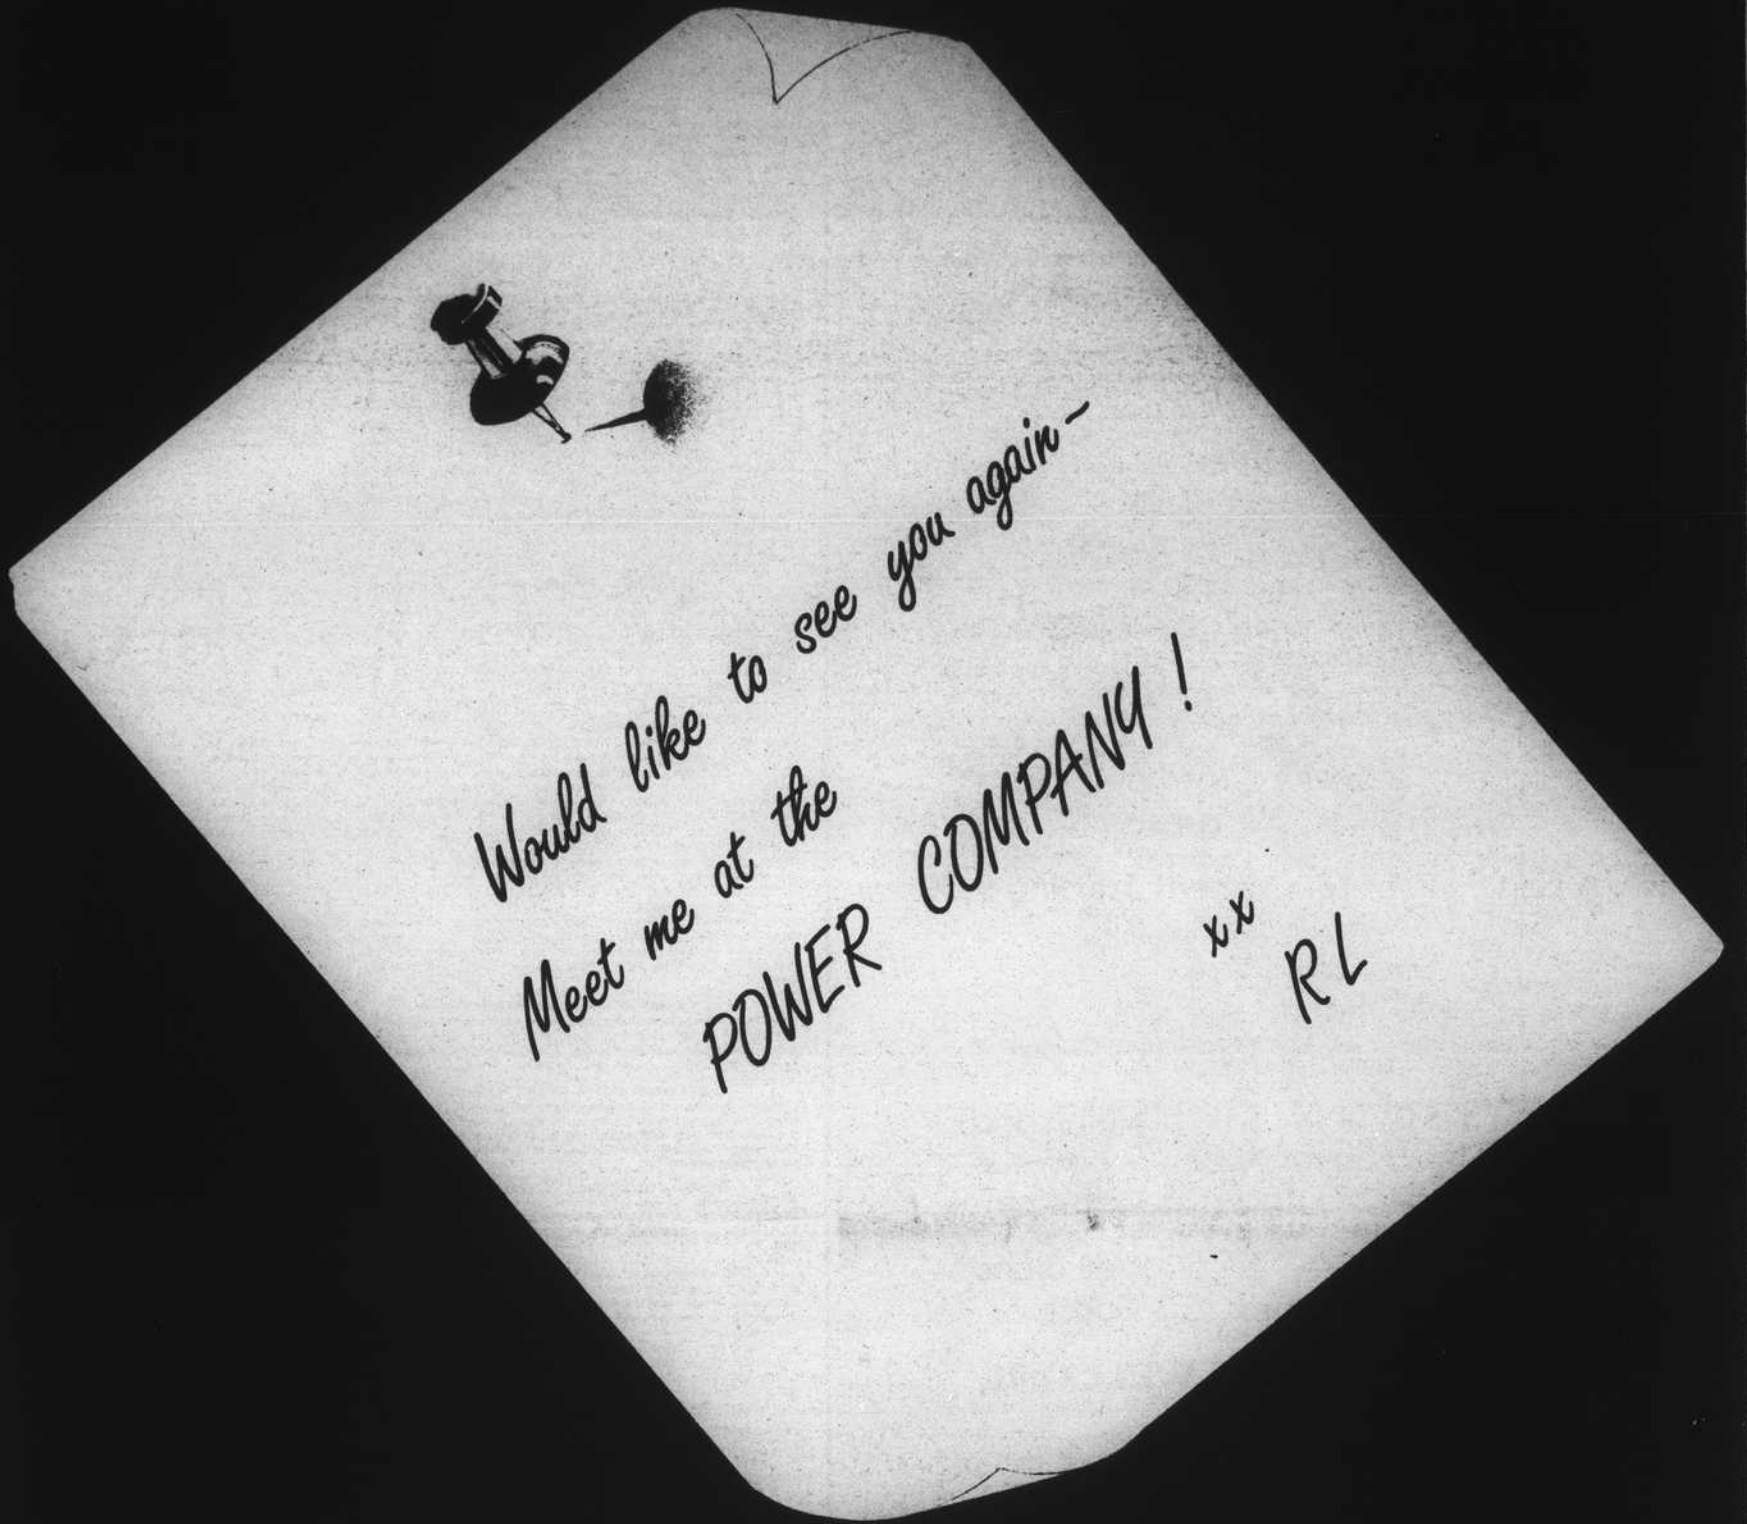 Would like to see you again-
Meet me at the
POWER COMPANY!
xx
RL